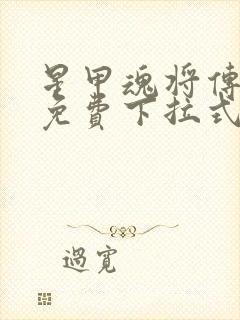 星甲魂将傳
免費下拉式
過寬